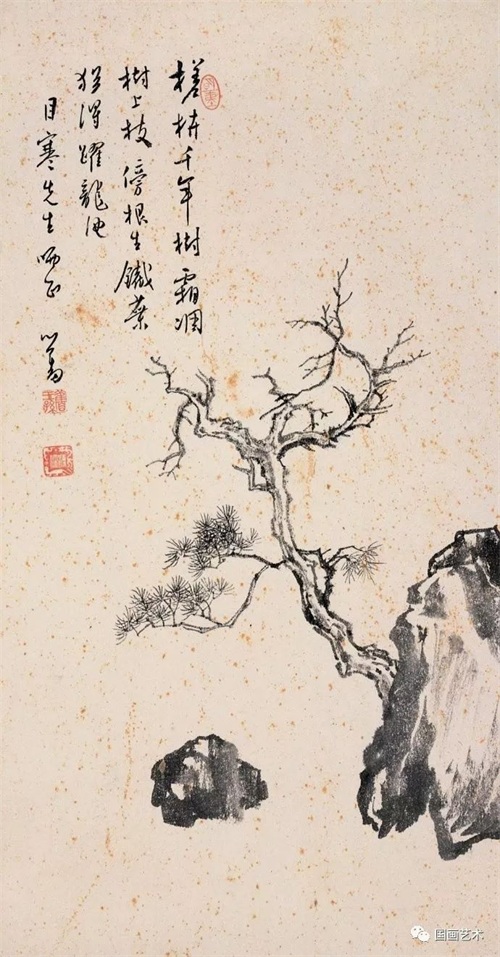 槎枿千年樹霜凋
樹上枝傍根生鐵葉
猶得躍龍池
目寒先生哂正 心畬
国画艺术